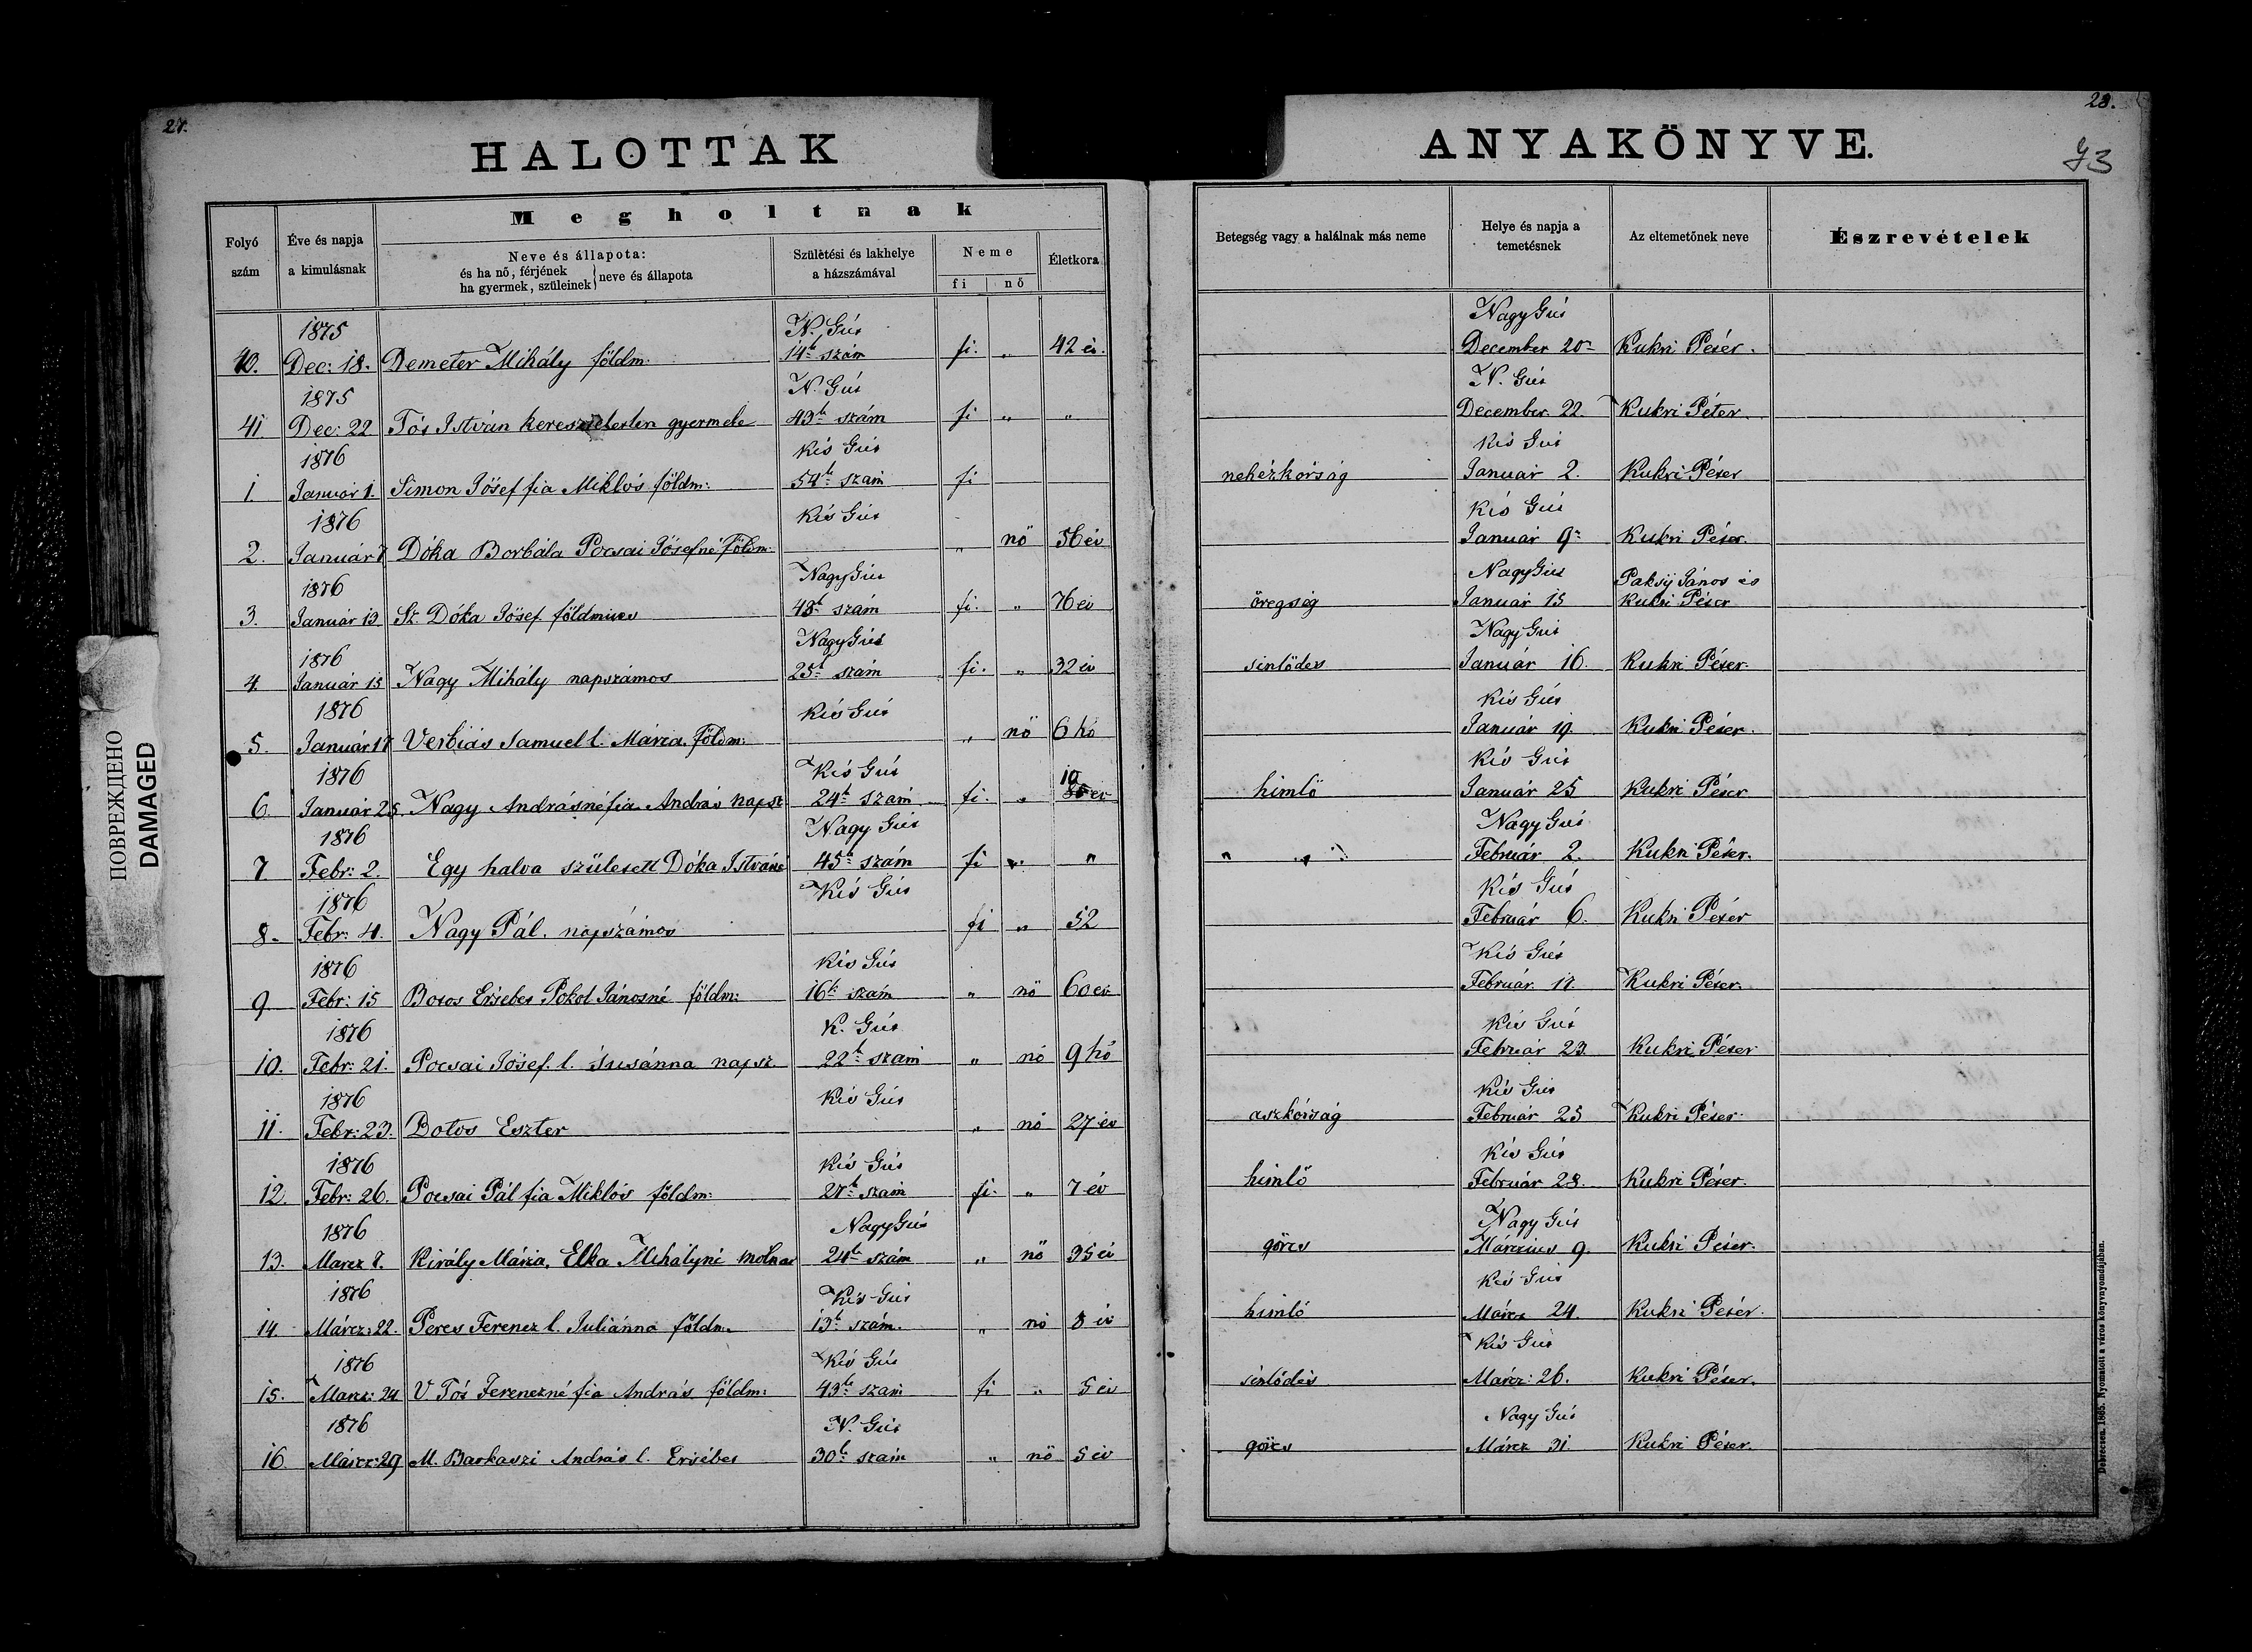 27.
28.
HALOTTAK
ANYAKÖNYVE.
73
Folyó szám
Éve és napja a kimulásnak
Megholtnak
Neve és állapota:
és ha nő, férjének
ha gyermek, szüleinek } neve és állapota
Születési és lakhelye a házszámával
Neme
fi nő
Életkora
Betegség vagy a halálnak más neme
Helye és napja a temetésnek
Az eltemetőnek neve
Észrevételek
1875 N. Gút Nagy Gút
40. Dec: 18. Demeter Mihály földm. 14k szám fi. „ 42 év. December 20n Kukri Péter.
1875 N. Gút N. Gút
41 Dec: 22 Tót István kereszteletlen gyermeke 43k szám fi „ „ December 22. Kukri Péter
1876 Kis Gút Kis Gút
1. Január 1. Simon Jósef fia Miklós földm: 54k szám fi nehézkórság Január 2. Kukri Péter
1876 Kis Gút Kis Gút
2. Január 7 Dóka Borbála Pocsai Jósefné földm. „ nö 56 év Január 9n Kukri Péter.
1876 Nagy Gút Nagy Gút Paksÿ János és
3. Január 13 Sz. Dóka Jósef földmives 48k szám fi. „ 76 év öregség Január 15 Kukri Péter
1876 Nagy Gút Nagy Gút
4. Január 15 Nagy Mihály napszámos 25k szám fi. „ 32 év sinlödes Január 16. Kukri Péter.
1876 Kis Gút Kis Gút
5. Január 17 Verbiás Samuel l. Mária földm: „ nö 6 hó Január 19. Kukri Péter.
1876 Kis Gút 10 Kis Gút
6. Január 25. Nagy Andrásné fia András napsz 24k szám fi. „ év himlö Január 25 Kukri Péter
1876 Nagy Gút Nagy Gút
7 Febr: 2. Egy halva született Dóka Istváné 45k szám fi „ „ „ „ Február 2. Kukri Péter.
1876 Kis Gút Kis Gút
8. Febr: 4. Nagy Pál. napszámos fi „ 52 Február 6. Kukri Péter
1876 Kis Gút Kis Gút
9. Febr: 15 Botos Ersébet Pokol Jánosné földm: 16k szám „ nö 60 év Február 17. Kukri Péter.
1876 K. Gút Kis Gút
10. Febr: 21. Pocsai Jósef. l. Susánna napsz. 22k szám „ nö 9 hó Február 23. Kukri Péter
1876 Kis Gút Kis Gút
11. Febr: 23. Botos Eszter „ nö 27 év aszkórság Február 25 Kukri Péter.
1876 Kis Gút Kis Gút
12. Febr: 26. Pocsai Pál fia Miklós földm: 27k szám fi. „ 7 év himlö Február 28. Kukri Péter.
1876 Nagy Gút Nagy Gút
13. Marcz 7. Király Mária, Elka Mihályné molnar 24k szám „ nö 35 év görcs Március 9. Kukri Péter.
1876 Kis Gút Kis Gút
14. Márcz: 22. Peres Ferencz l. Juliánna földm. 13k szám. „ nö 8 év himló Márcz 24. Kukri Péter.
1876 Kis Gút Kis Gút
15. Marcz: 24 V Tót Ferenczné fia András földm: 43k szám fi „ 5 év sinlödés Márcz: 26. Kukri Péter.
1876 N. Gút Nagy Gút
16. Márcz: 29 M. Barkaszi András l. Ersébet 30k szám „ nö 5 év görcs Márcz 31. Kukri Péter.
ПОВРЕЖДЕНО
DAMAGED
Debreczen. 1865. Nyomatott a város könyvnyomdájában.